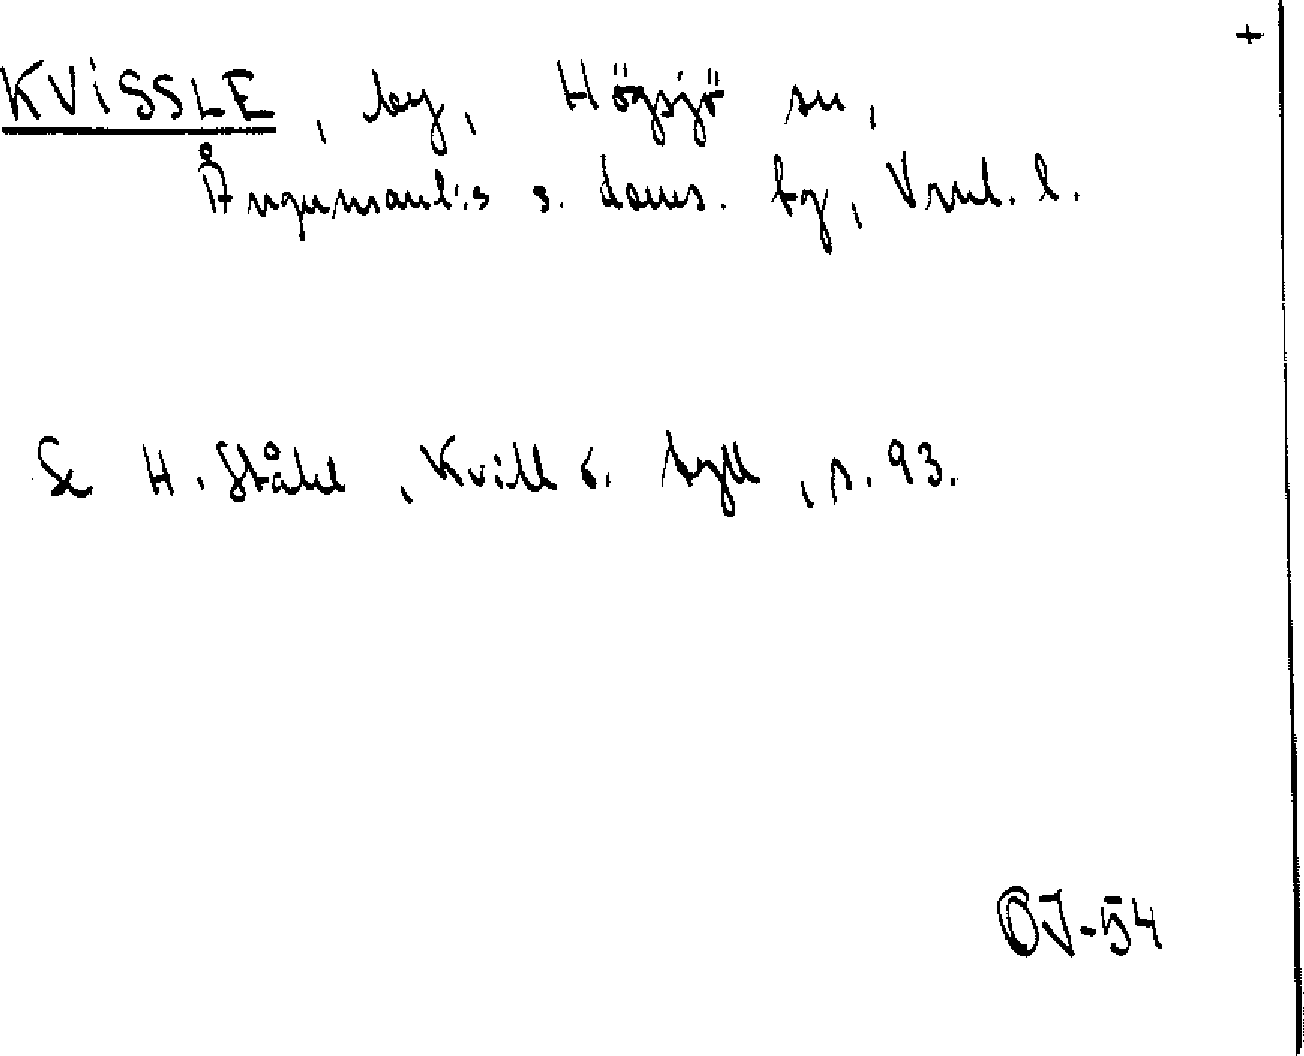 +
KVISSLE, by, Högsjö sn,
Ångermanl:s s. doms. tg, Vrnl. l.
Se H. Ståhl, Kvill o. tyll, s. 93.
OJ-54